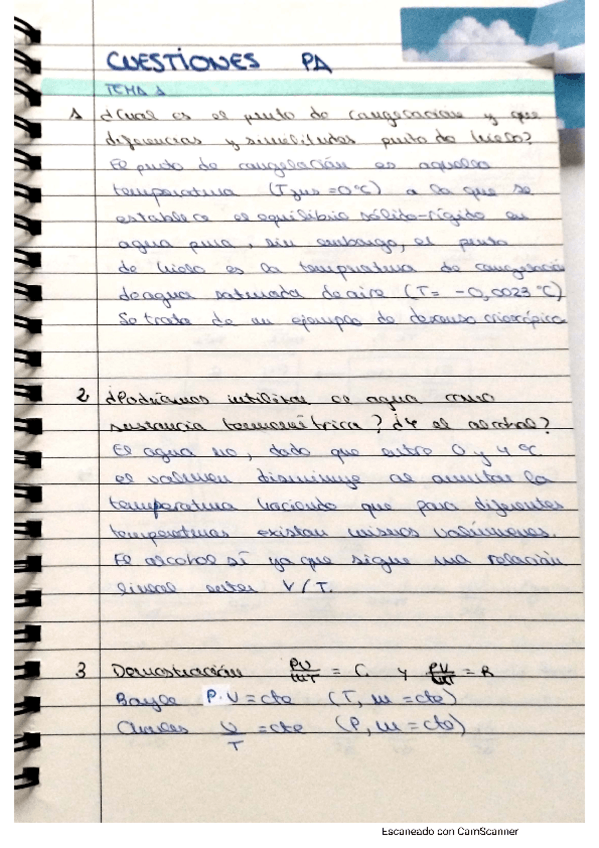 CUESTIONES PA
TEMA 1
1 ¿Cual es el punto de congelación y que
diferencias y similitudes punto de hielo?
El punto de congelación es aquella
temperatura (T = 0ºC) a la que se
establece el equilibrio sólido-rígido en
agua pura, sin embargo, el punto
de hielo es la temperatura de congelació
de agua saturada de aire (T = -0,0023 ºC)
Se trata de un ejemplo de descenso crioscópico
2 ¿Podríamos utilizar el agua como
sustancia termométrica? ¿Y el alcohol?
El agua no, dado que entre 0 y 4 ºC
el volumen disminuye al aumentar la
temperatura haciendo que para diferentes
temperaturas existan mismos volúmenes.
El alcohol sí ya que sigue una relación
lineal entre V/T.
3 Demostración PV/mT = C. y PV/ = R
Boyle P·V = cte (T, m = cte)
Charles V/T = cte (P, m = cte)
Escaneado con CamScanner